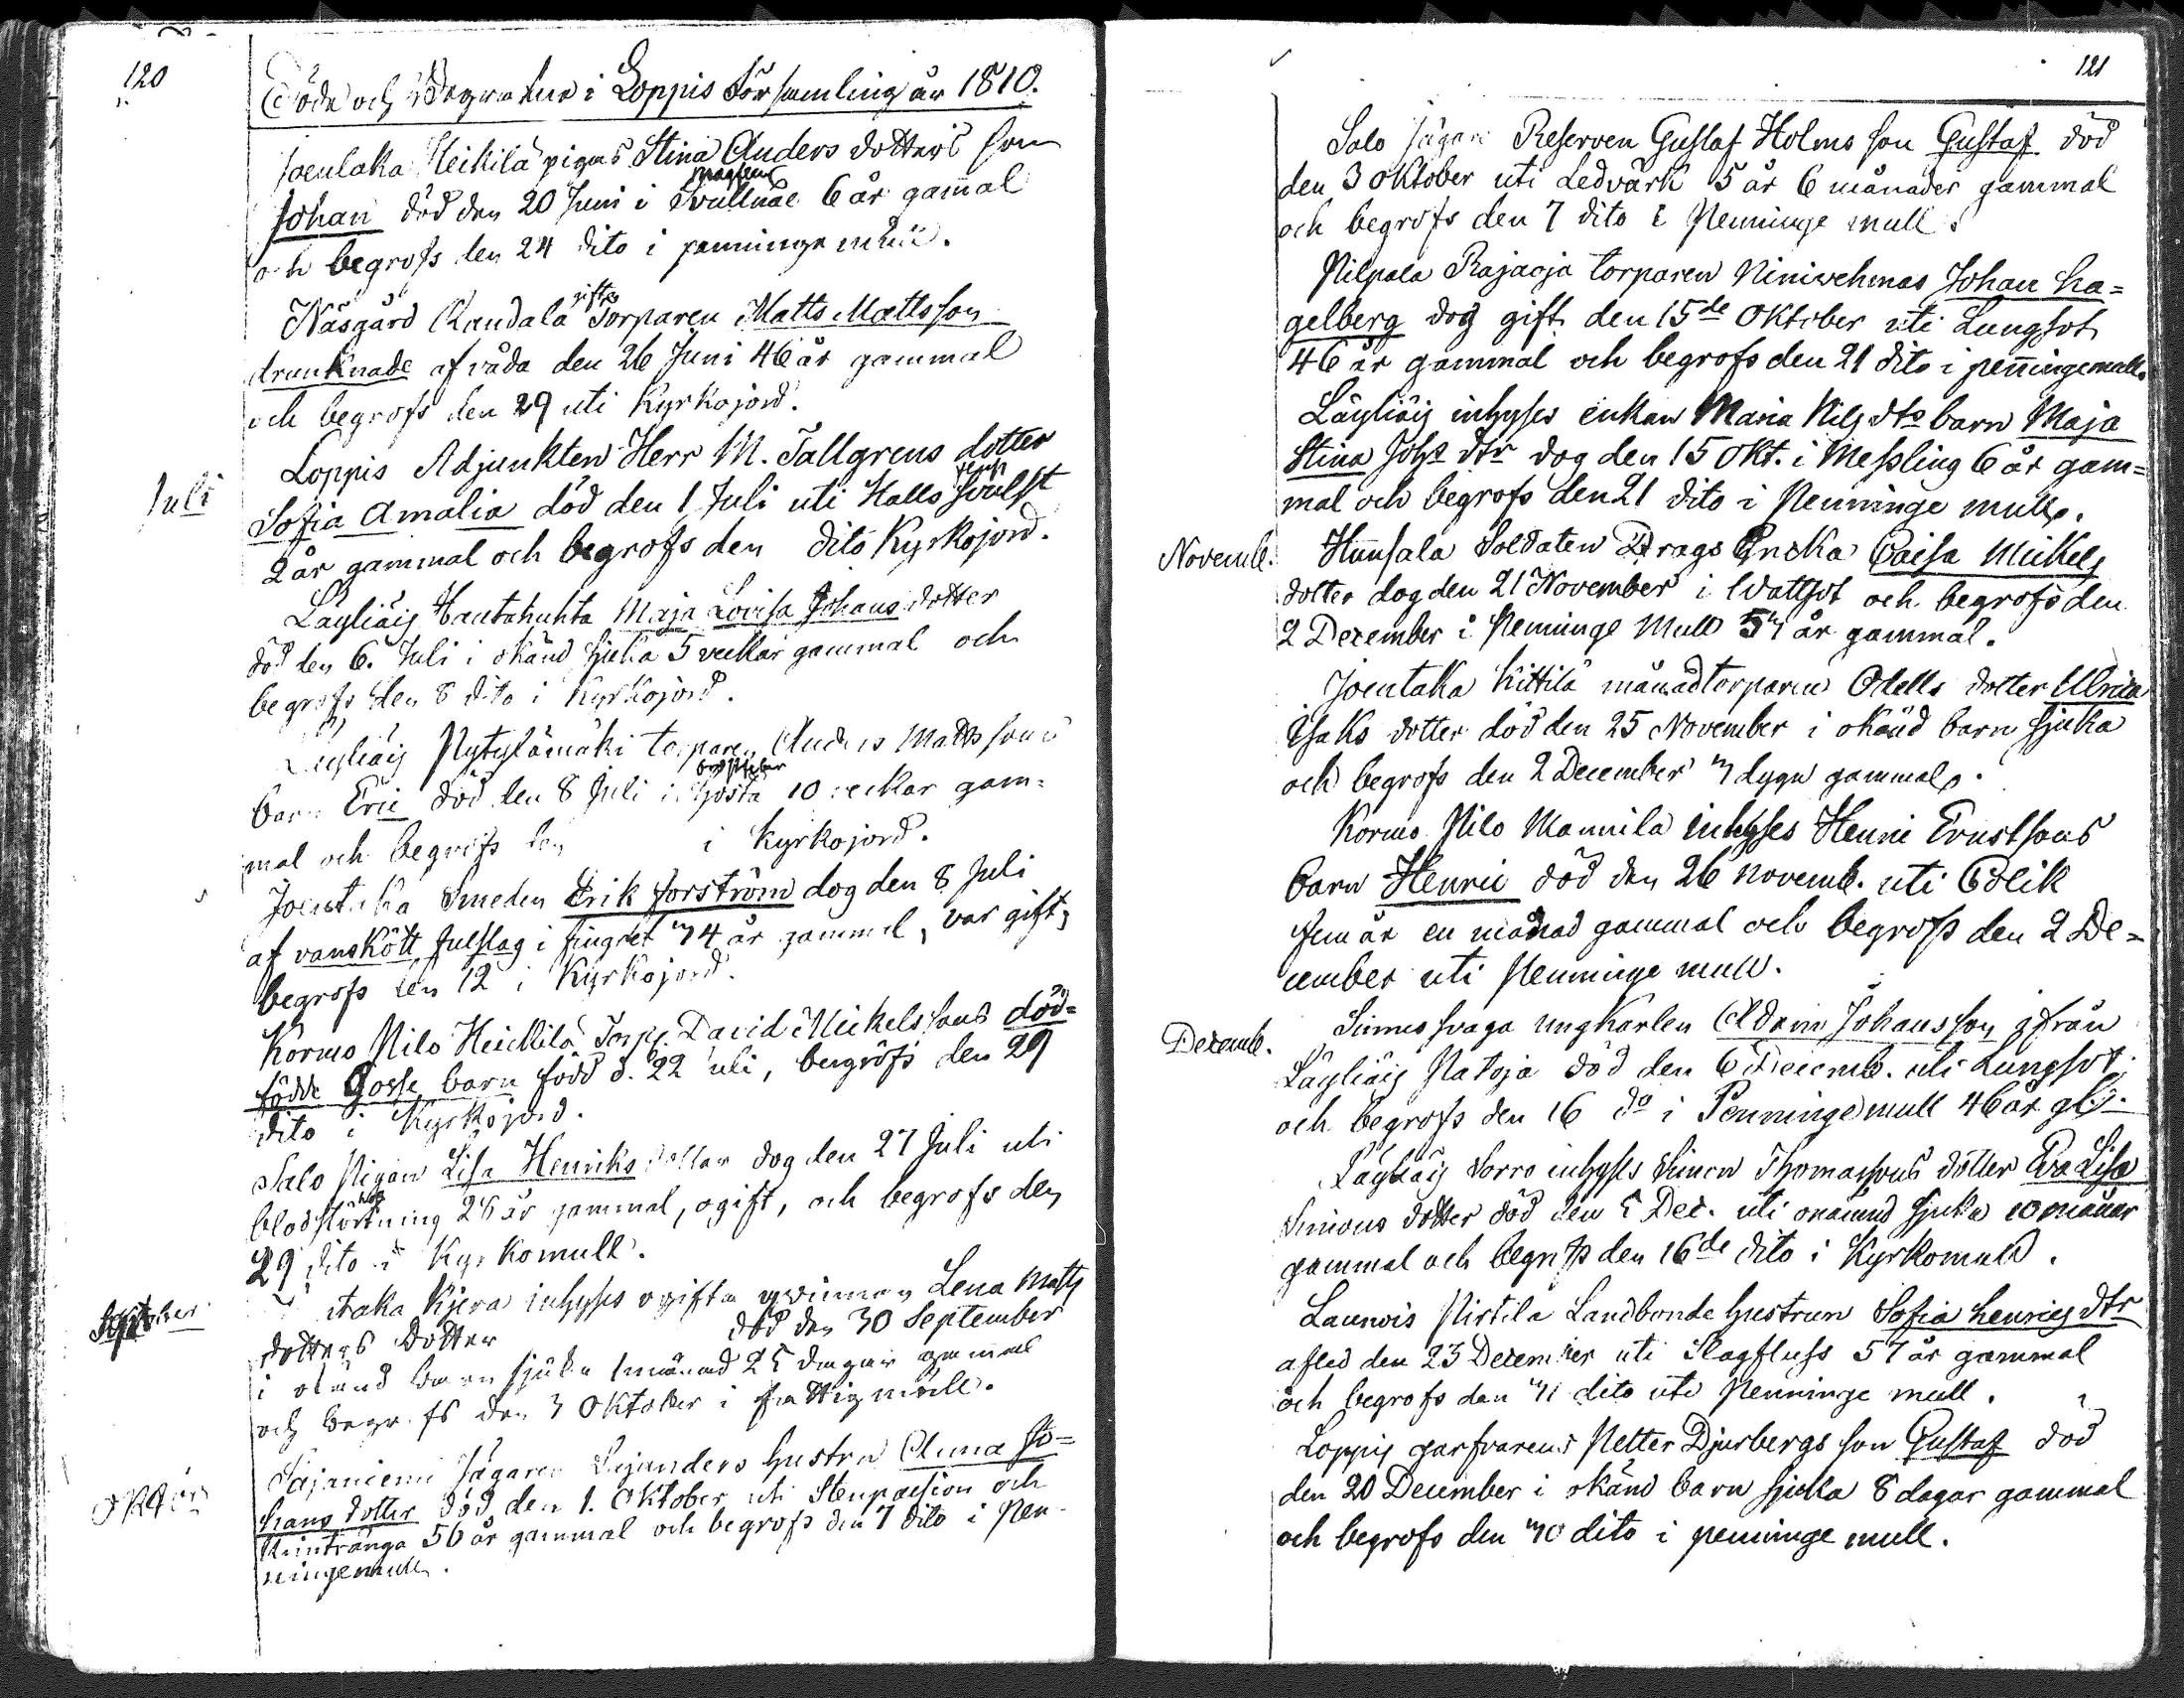 120
Döde och Begrafne i Loppis Församling år 1810.
Joentaka Heikilä pigas Stina Anders dotters son
Johan död den 20 Juni i Svullnad 6 år gammal
och begrofs den 24 dito i penninge mull.
Näsgård Randala gifte Torparen Matts Mattsson
drunknade af våda den 26 Juni 46 år gammal
och begrofs den 29 uti Kyrkojord.
Juli
Loppis Adjunkten Herr M. Tallgrens dotter
Sofia Amalia död den 1 Juli uti Halls Svulst
2 år gammal och begrofs den dito Kyrkojord.
Läyliäis Hautahuhta Maja Lovisa Johans dotter
död den 6. Juli i okänd sjuka 5 veckar gammal och
begrofs den 8 dito i Kyrkojord.
Läyliäis Pytylämäki torparen Anders Mattssons
barn Eric död den 8 Juli i hosta 10 veckar gam=
mal och begrofs den i Kyrkojord.
Joentaka Smeden Erik Forström dog den 8 Juli
af vanskött Julslag i fingret 74 år gammal, var gift,
begrofs den 12 i Kyrkojord.
Kormo Pilo Heickilä Torp. David Mickelssons död=
födde Gosse barn född d. 22 Juli, begrofs den 29
dito i Kyrkojord.
Salo Pigan Lisa Henriks dotter dog den 27 Juli uti
blodstörtning år gammal, ogift, och begrofs den
29 dito i Kyrkomull.
September
Kjera inhyses ogifta qvinnan Lena Matts
dotters Dotter död den 30 September
i okänd barn sjuka 1 månad 25 dagar gammal
och begrofs den 3 Oktober i fattigmull.
Sajaniemi Jägaren hustru Anna Jo=
hans dotter död den 1. Oktober uti Stenpassion och
56 år gammal och begrofs den 7 dito i Pen-
ningemull.
121
Salo Jägare Reserven Gustaf Holms son Gustaf död
den 3 Oktober uti Ledvärk 5 år 6 månader gammal
och begrofs den 7 dito i Penninge mull.
Pilpala Rajaoja torparen Johan Ha=
gelberg dog gift den 15de Oktober uti Lungsot
46 år gammal och begrofs den 21 dito i penningemull.
Läyliäis inhyses enkan Maria Nils dts barn Maja
Stina Johs dtr dog den 15 Okt. i Messling 6 år gam=
mal och begrofs den 21 dito i Penninge mull.
Novemb.
Hunsala Soldaten Drags Encka Caisa Mickels
dotter dog den 21 November i Wattsot och begrofs den
2 December i Penninge Mull 57 år gammal.
Joentaka Kittilä månadtorparen Odells dotter Ulrica
Isaks dotter död den 25 November i okänd barn sjuka
och begrofs den 2 December 7 dygn gammal.
Kormo Pilo Mannila inhyses Henric Ernstsons
barn Henric död den 26 novemb. uti Colik
fem år en månad gammal och begrofs den 2 De=
cember uti Penninge mull.
Decemb.
Sinnessvaga ungkarlen Adam Johansson ifrån
Läyliäis Patoja död den 6 Decemb. uti Lungsot
och begrofs den 16 do i Penninge mull 46 år gl.
Läyliäis Sorro inhyses Simon Thomassons dotter Eva Lisa
Simons dotter död den 5 Dec. uti onämnd sjuka 10 månar
gammal och begrofs den 16de dito i Kyrkomull.
Launois Pirtilä Landbonde hustrun Sofia Henrics dtr
afled den 23 December uti Slagfluss 57 år gammal
och begrofs den 31 dito uti Penninge mull.
Loppis garfvarens Petter Djurbergs son Gustaf död
den 20 December i okänd barn sjuka 8 dagar gammal
och begrofs den 30 dito i penninge mull.